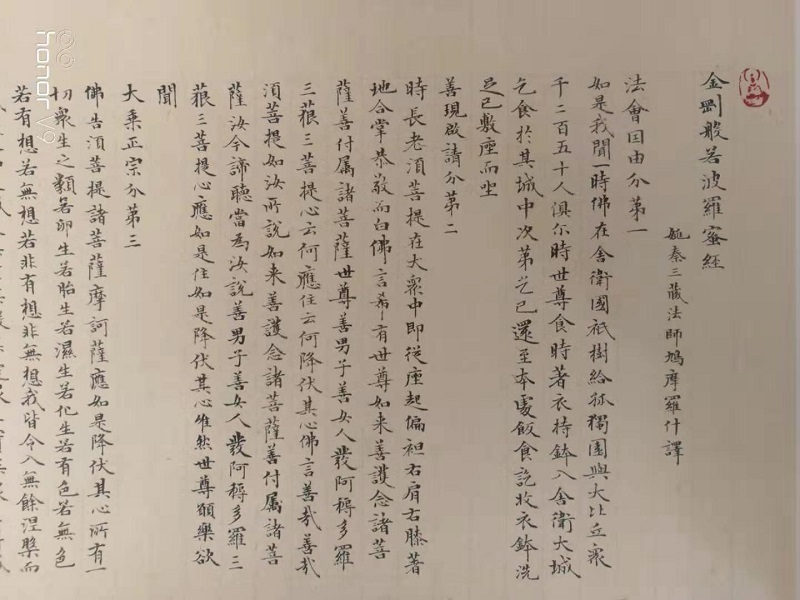 金剛般若波羅蜜經
姚秦三藏法師鳩摩羅什譯
法會因由分第一
如是我聞一時佛在舍衛國祇樹給孤獨園與大比丘衆
千二百五十人俱尒時世尊食時著衣持鉢入舍衛大城
乞食於其城中次第乞已還至本處飯食訖收衣鉢洗
足已敷座而坐
善現啟請分第二
時長老須菩提在大衆中即從座起偏袒右肩右膝著
地合掌恭敬而白佛言希有世尊如来善護念諸菩
薩善付属諸菩薩世尊善男子善女人發阿耨多羅
三藐三菩提心云何應住云何降伏其心佛言善哉善哉
須菩提如汝所說如来善護念諸菩薩善付属諸菩
薩汝今諦聽當為汝說善男子善女人發阿耨多羅三
藐三菩提心應如是住如是降伏其心唯然世尊願樂欲
聞
大乘正宗分第三
佛告須菩提諸菩薩摩訶薩應如是降伏其心所有一
切衆生之類若卵生若胎生若濕生若化生若有色若無色
若有想若無想若非有想非無想我皆令入無餘涅槃而
honor V9